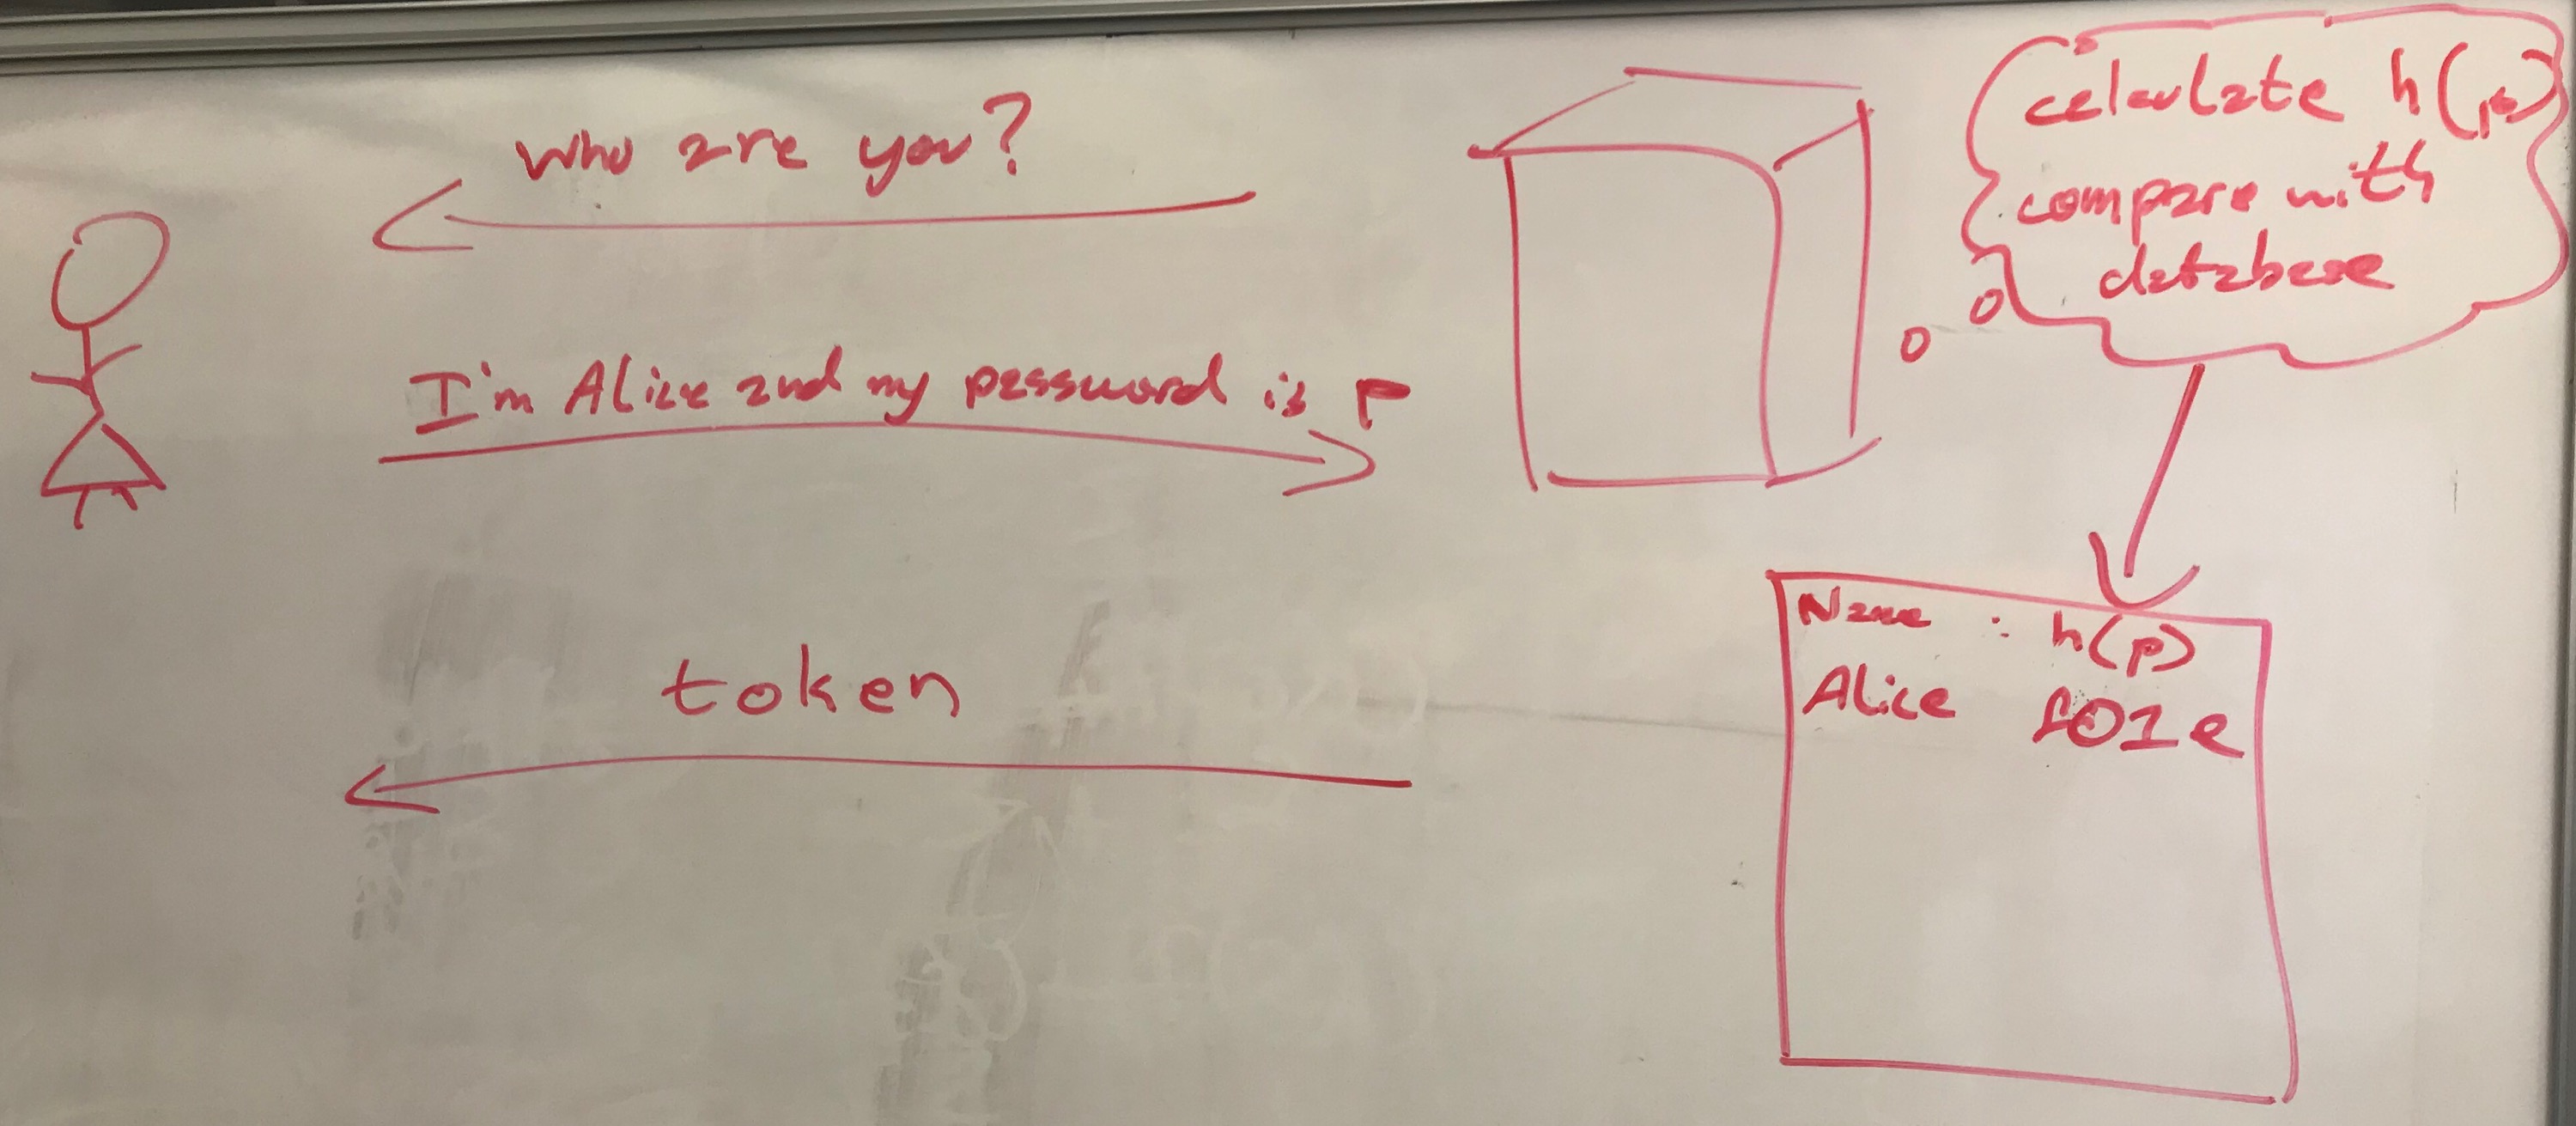 who are you?
I'm Alice and my password is P
token
calculate h(p)
compare with
database
Name : h(p)
Alice f01e